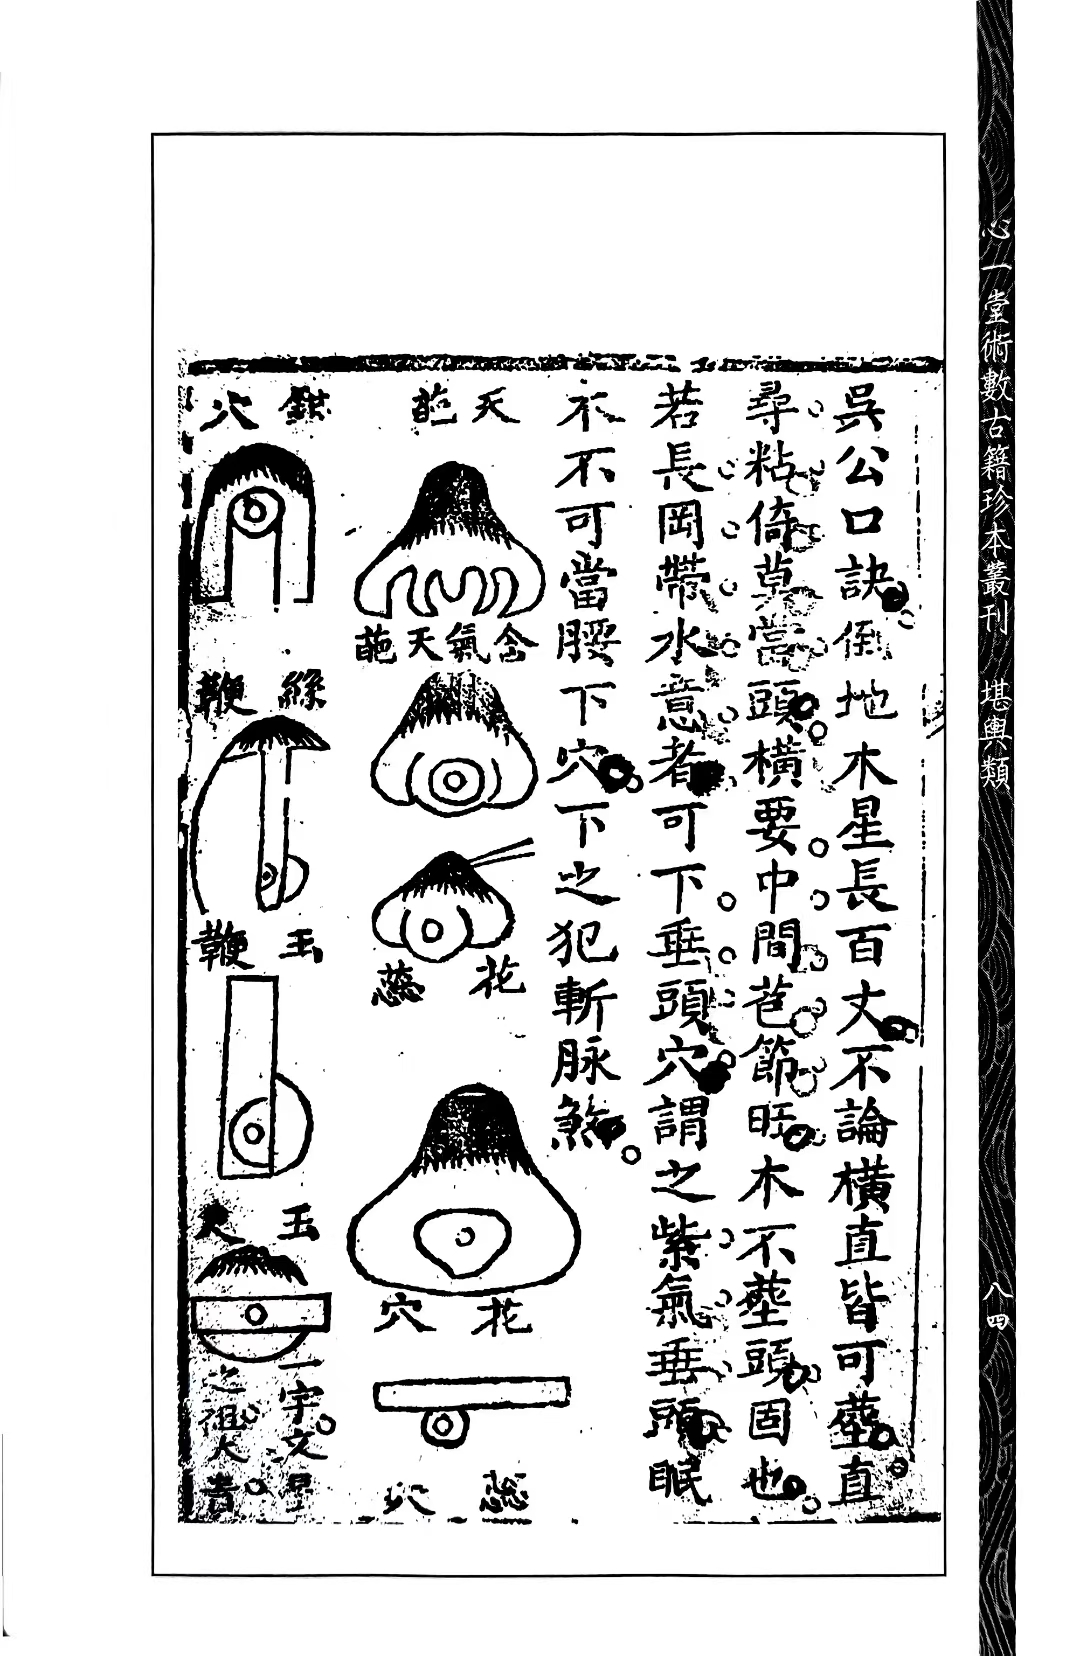 心一堂術數古籍珍本叢刊 堪輿類
八四
吳公口訣倒地木星長百丈不論橫直皆可塟直
尋粘倚莫當頭橫要中間苞節旺木不塟頭固也
若長岡帶水意者可下垂頭穴謂之紫氣垂頭眠
木不可當腰下穴下之犯斬脉煞
天葩
含氣天葩
花蕊
花穴
蕊穴
鉗穴
絲鞭
玉鞭
玉尺
一字文星
之祖大吉